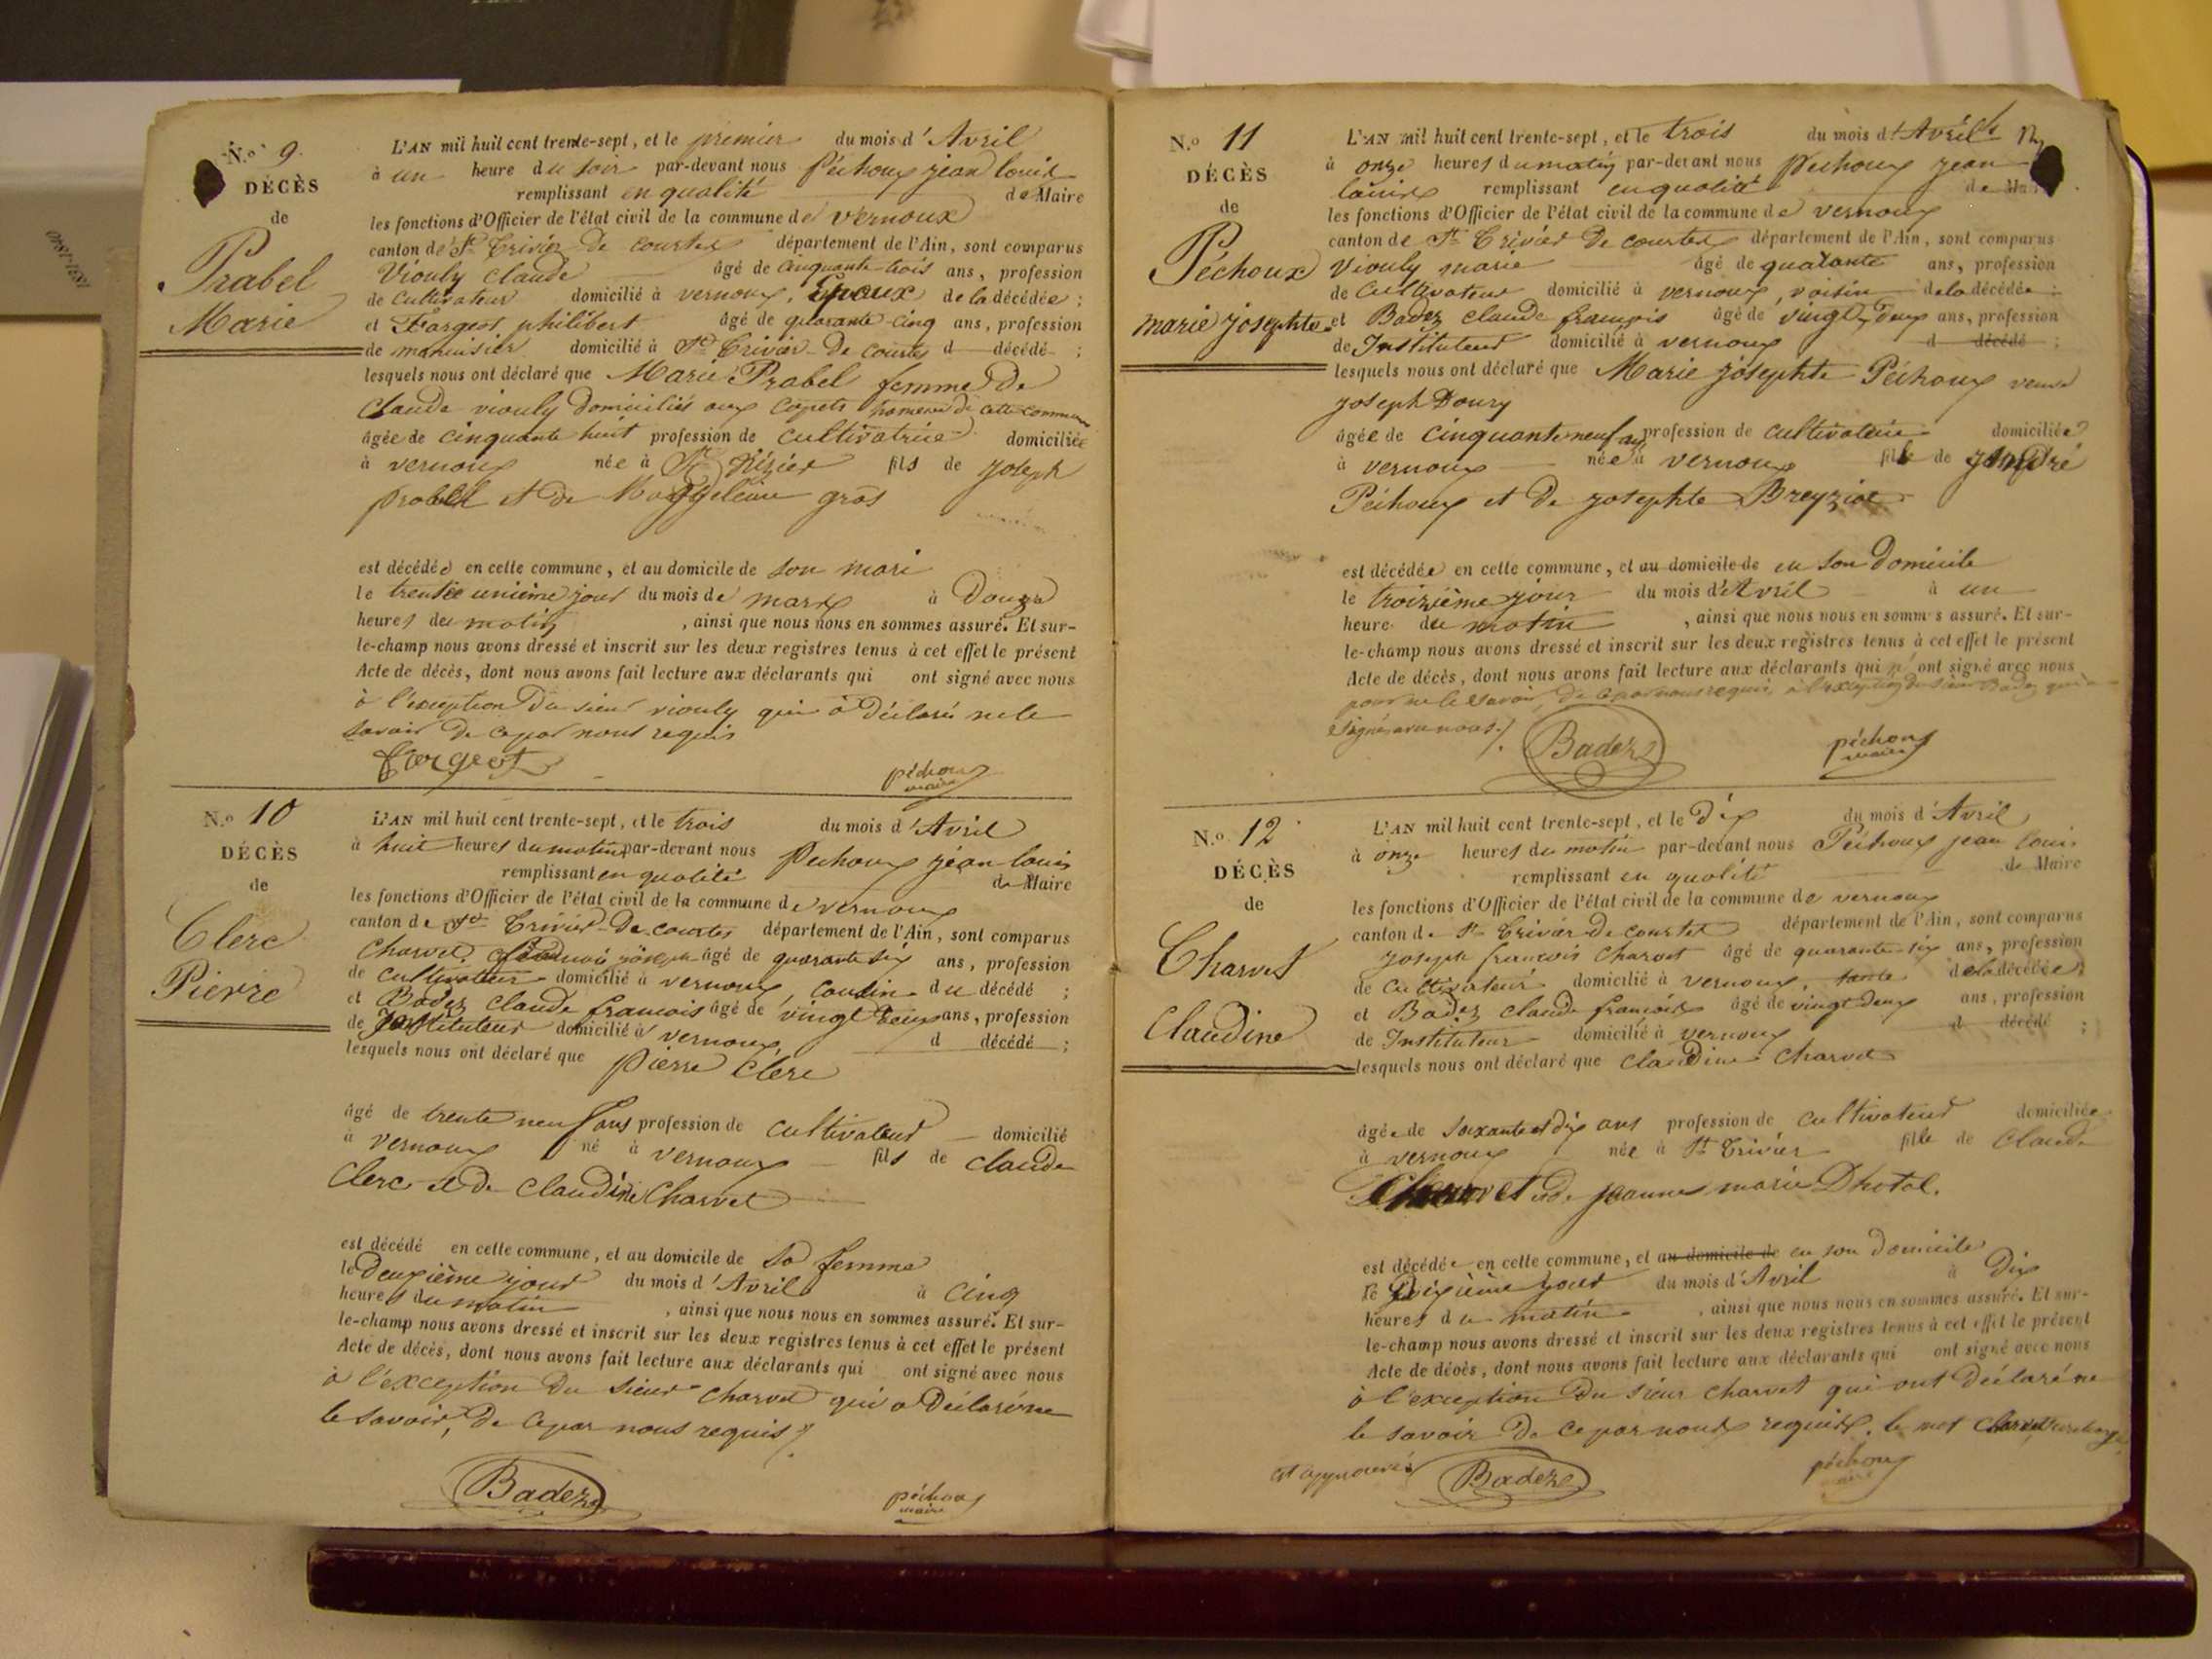 N.º 9.
DÉCÈS
de
Prabel
Marie
L'AN mil huit cent trente-sept, et le premier du mois d'Avril
à un heure du soir par-devant nous Péchoux jean louis
remplissant en qualité de Maire
les fonctions d'Officier de l'état civil de la commune de vernoux
canton de St Trivier De courtes département de l'Ain, sont comparus
Viouly claude âgé de cinquante-trois ans, profession
de cultivateur domicilié à vernoux, Epoux de la décédée ;
et Fargeot philibert âgé de quarante-cinq ans, profession
de menuisier domicilié à St Trivier-De courtes d décédé ;
lesquels nous ont déclaré que Marie Prabel femme De
Claude viouly Domiciliés aux Copets hameau de cette commune
âgée de cinquante huit profession de cultivatrice domiciliée
à vernoux née à St Nizier fils de joseph
prabel et de gros
est décédée en cette commune, et au domicile de son mari
le trente unième jour du mois de mars à Douze
heures du matin , ainsi que nous nous en sommes assuré. Et sur-
le-champ nous avons dressé et inscrit sur les deux registres tenus à cet effet le présent
Acte de décès, dont nous avons fait lecture aux déclarants qui ont signé avec nous
à l'exception Du sieur viouly qui a Déclaré ne le
savoir De ce par nous requis
Fargeot
péchoux
maire
N.º 10
DÉCÈS
de
Clerc
Pierre
L'AN mil huit cent trente-sept, et le trois du mois d'Avril
à huit heures du matin par-devant nous Péchoux jéan louis
remplissant en qualité de Maire
les fonctions d'Officier de l'état civil de la commune de vernoux
canton de St Trivier-De-courtes département de l'Ain, sont comparus
Charvet joseph âgé de quarante six ans, profession
de cultivateur domicilié à vernoux, cousin du décédé ;
et Badez Claude françois âgé de vingt Deux ans, profession
de Instituteur domicilié à vernoux d décédé ;
lesquels nous ont déclaré que Pierre Clerc
âgé de trente neuf ans profession de cultivateur domicilié
à vernoux né à vernoux fils de claude
Clerc et de Claudine Charvet
est décédé en cette commune, et au domicile de sa femme
le Deuxième jour du mois d'Avril à cinq
heures du matin , ainsi que nous nous en sommes assuré. Et sur-
le-champ nous avons dressé et inscrit sur les deux registres tenus à cet effet le présent
Acte de décès, dont nous avons fait lecture aux déclarants qui ont signé avec nous
à l'exception Du sieur Charvet qui a Déclaré ne
le savoir, De ce par nous requis
Badez
péchoux
maire
N.º 11
DÉCÈS
de
Péchoux
marie josephte
L'AN mil huit cent trente-sept, et le trois du mois d'Avril
à onze heures du matin par-devant nous Péchoux jean
louis remplissant en qualité de Maire
les fonctions d'Officier de l'état civil de la commune de vernoux
canton de St Trivier De courtes département de l'Ain, sont comparus
Viouly marie âgé de quarante ans, profession
de Cultivateur domicilié à vernoux, voisin de la décédée ;
et Badez Claude françois âgé de vingt Deux ans, profession
de Instituteur domicilié à vernoux d décédé ;
lesquels nous ont déclaré que Marie josephte Péchoux veuve
joseph Doury
âgée de cinquante neuf ans profession de cultivateur domiciliée
à vernoux née à vernoux fille de
Péchoux et De josephte
est décédée en cette commune, et au domicile de en son Domicile
le troizième jour du mois d'Avril à un
heure du matin , ainsi que nous nous en sommes assuré. Et sur-
le-champ nous avons dressé et inscrit sur les deux registres tenus à cet effet le présent
Acte de décès, dont nous avons fait lecture aux déclarants qui n'ont signé avec nous
pour ne le savoir, De ce par nous requis, à l'exception du sieur Badez qui a
signé avec nous
Badez
péchoux
maire
N.º 12
DÉCÈS
de
Charvet
Claudine
L'AN mil huit cent trente-sept, et le Dix du mois d'Avril
à onze heures du matin par-devant nous Péchoux jean louis
remplissant en qualité de Maire
les fonctions d'Officier de l'état civil de la commune de vernoux
canton de St Trivier De courtes département de l'Ain, sont comparus
joseph françois Charvet âgé de quarante six ans, profession
de cultivateur domicilié à vernoux, de la décédée ;
et Badez claude françois âgé de vingt deux ans, profession
de Instituteur domicilié à vernoux d décédé ;
lesquels nous ont déclaré que Claudine Charvet
âgée de soixante et dix ans profession de cultivateur domiciliée
à vernoux née à St Trivier fille de Claude
Charvet et de jeanne marie Dhotal.
est décédée en cette commune, et au domicile de en son Domicile
le Dixième jour du mois d'Avril à Dix
heures du matin , ainsi que nous nous en sommes assuré. Et sur-
le-champ nous avons dressé et inscrit sur les deux registres tenus à cet effet le présent
Acte de décès, dont nous avons fait lecture aux déclarants qui ont signé avec nous
à l'exception Du sieur Charvet qui ont Déclaré ne
le savoir De ce par nous requis. le mot Charvet surchargé
est approuvé
Badez
péchoux